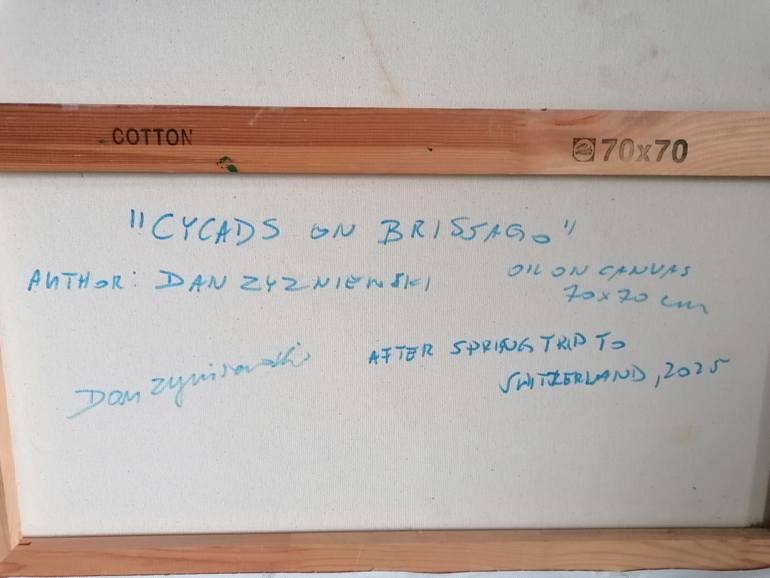 COTTON
70x70
"CYCADS ON BRISSAGO"
AUTHOR: DAN ZYZNIEWSKI
OIL ON CANVAS
70x70 cm
AFTER SPRING TRIP TO
SWITZERLAND, 2025
Dan Zyzniewski